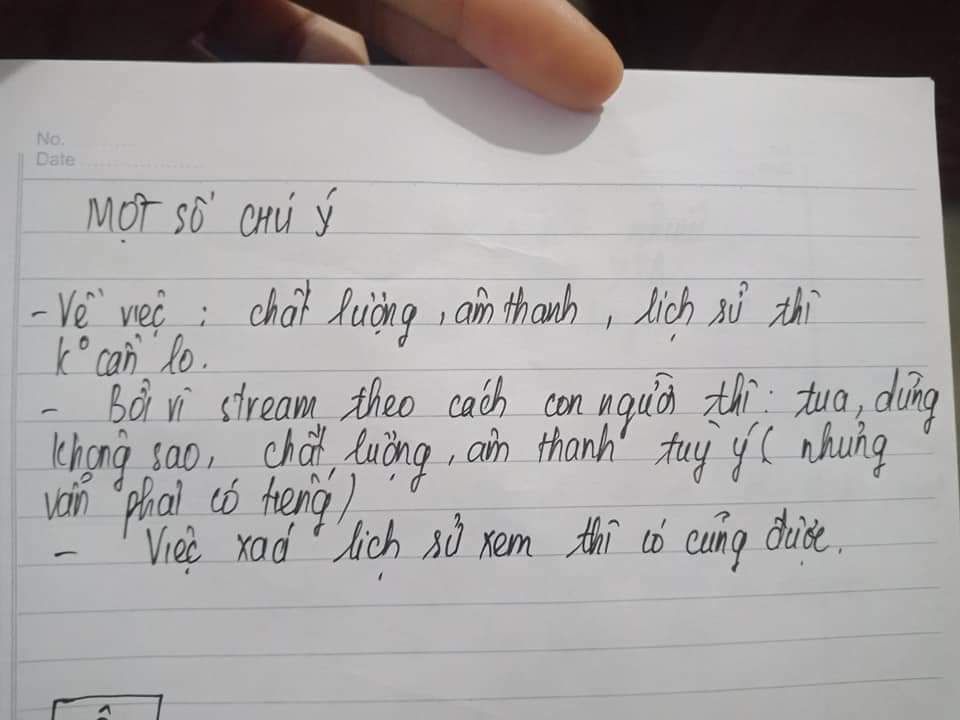 No.
Date
MỘT SỐ CHÚ Ý
- Về việc : chất lượng, âm thanh, lịch sử thì
k° cần lo.
- Bởi vì stream theo cách con người thì: tua, dừng
không sao, chất lượng, âm thanh tuỳ ý ( nhưng
vẫn phải có tiếng)
- Việc xoá lịch sử xem thì có cũng được.